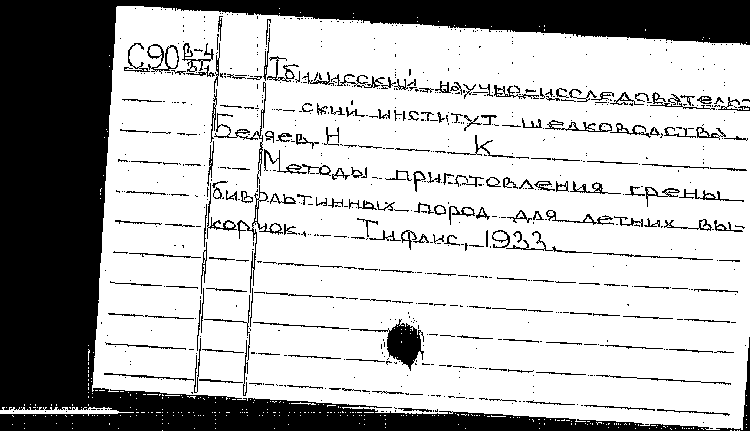 С90 В-4/54 Тбилисский научно-исследователь-
ский институт шелководства.
Беляев, Н К
Методы приготовления грены
бивольтинных пород для летних вы-
кормок. Тифлис, 1933.